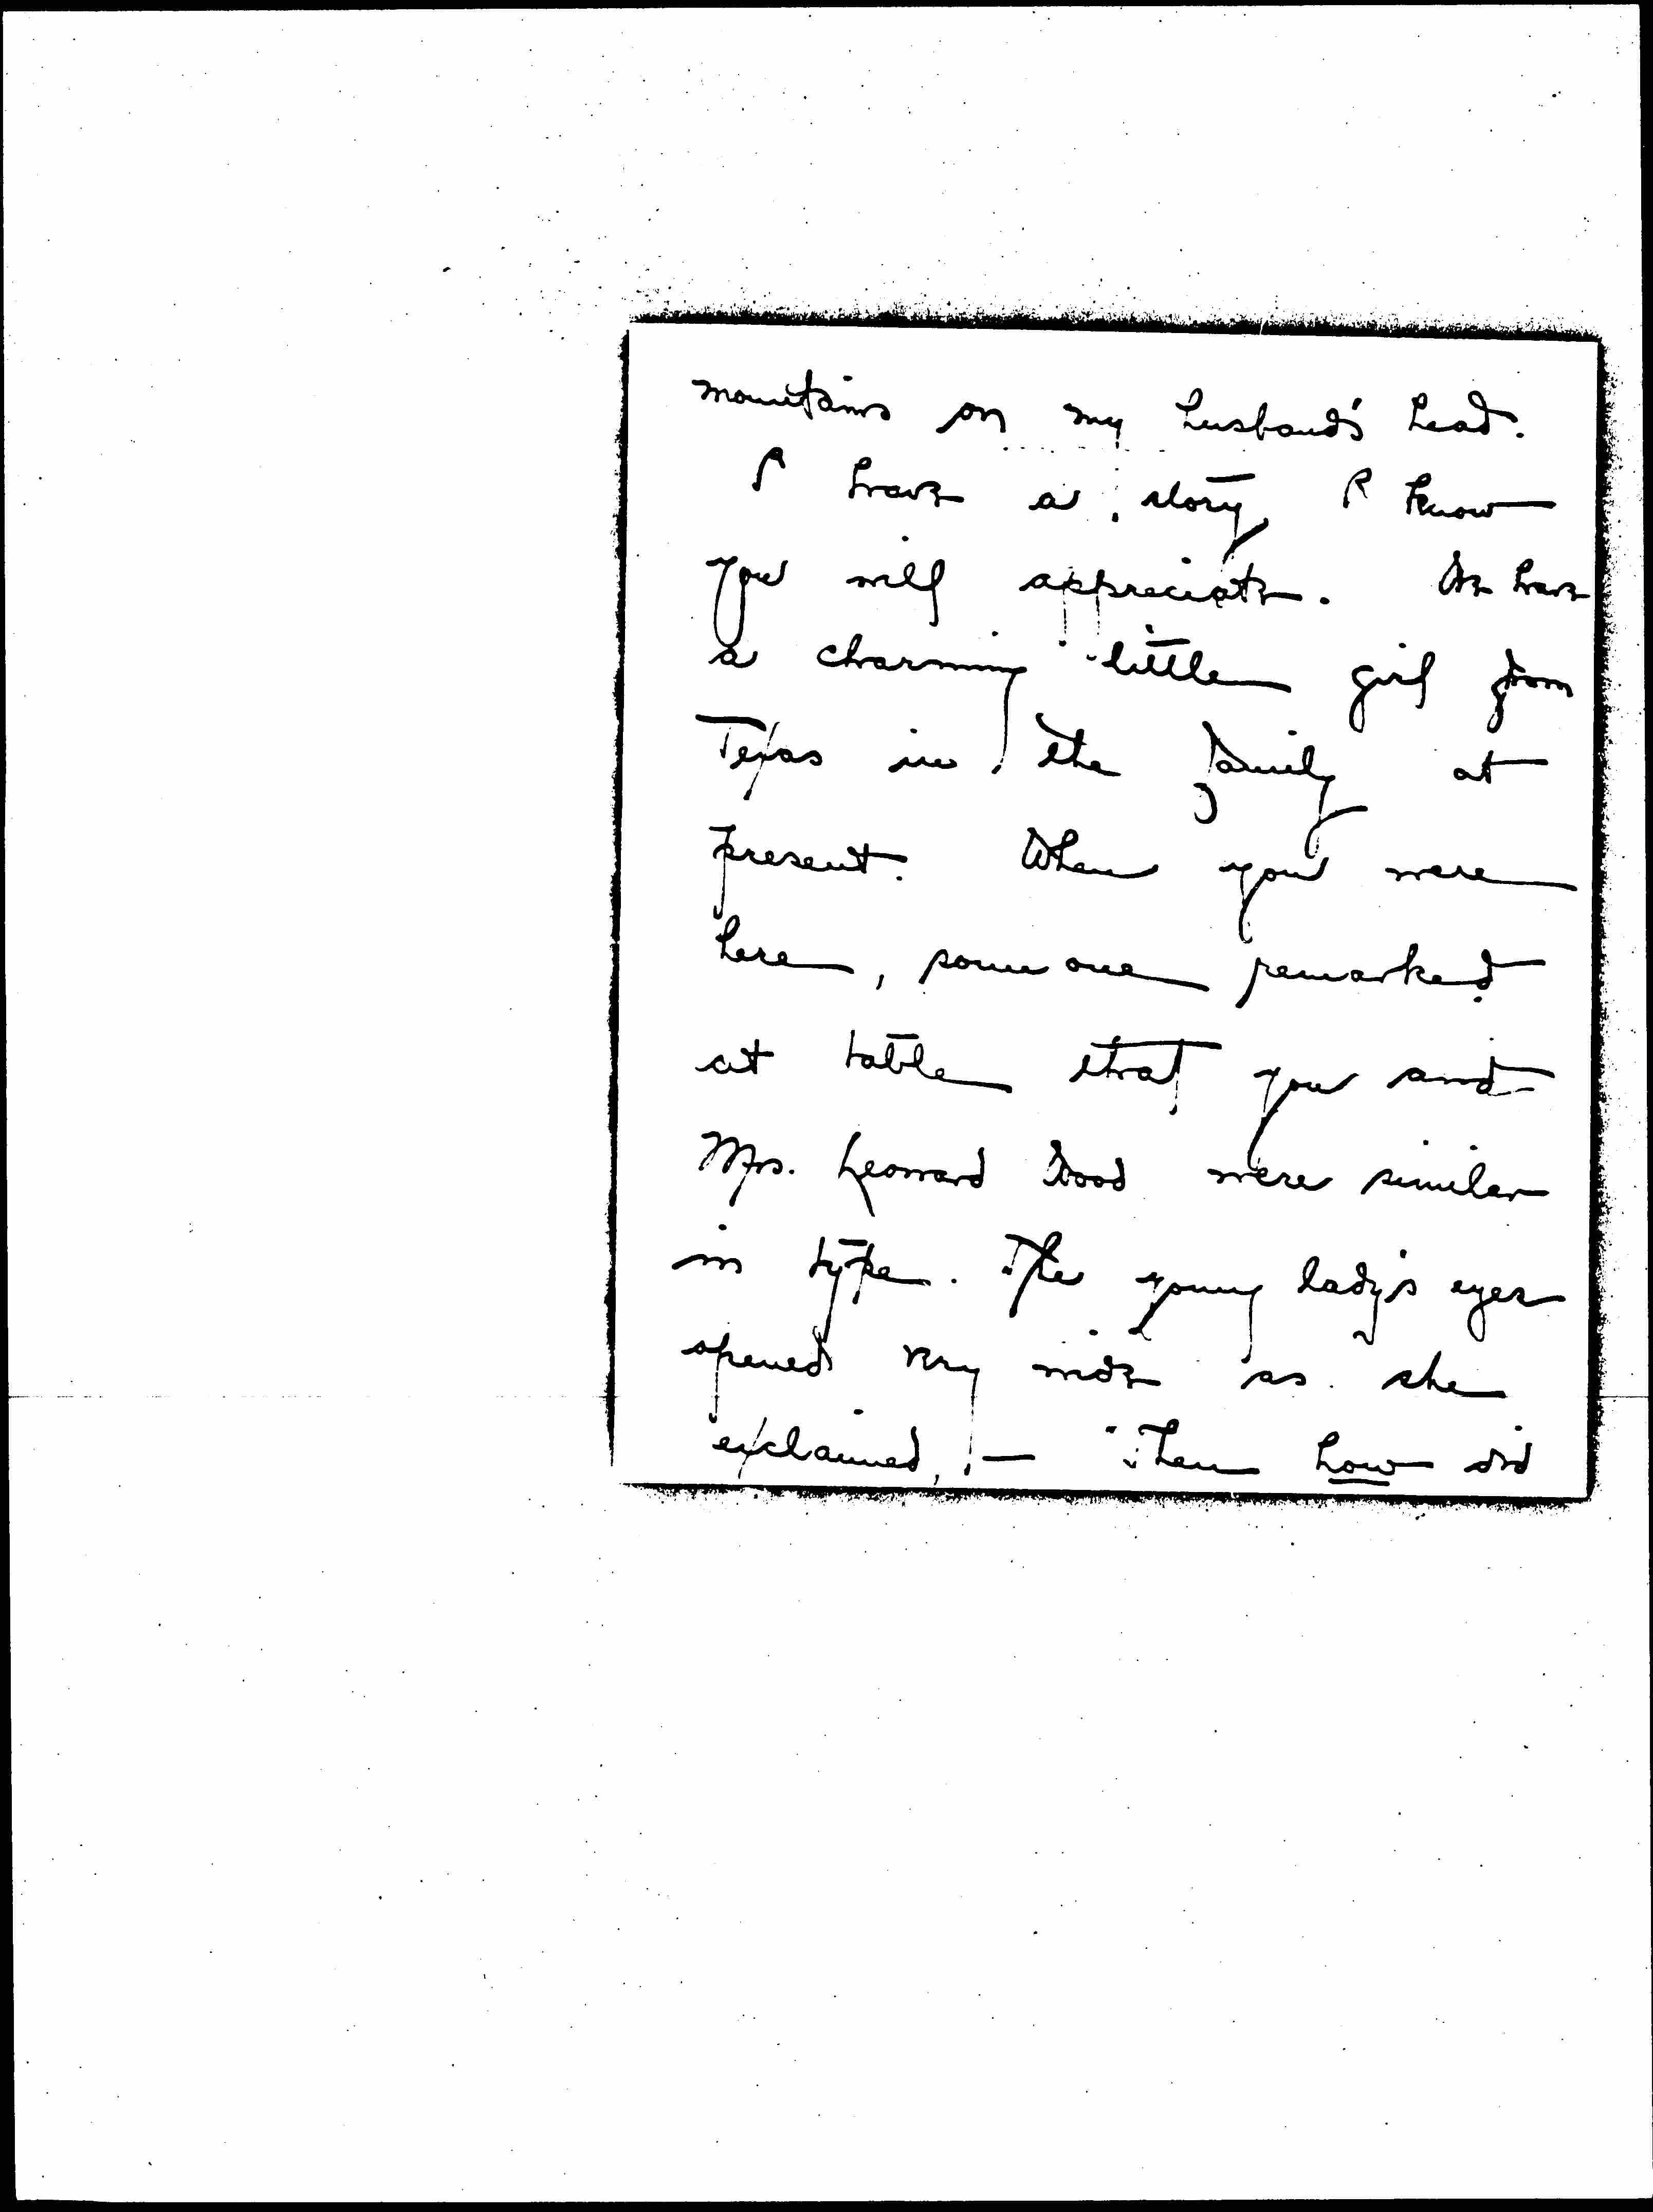 mountains on my husband's head.
I have a story, I know
you will appreciate. We have
a charming little girl from
Texas in the family at
present. When you were
here, some one remarked
at table that you and
Mrs. Leonard Wood were similar
in type. The young lady's eyes
opened very wide as she
exclaimed, — "Then how did